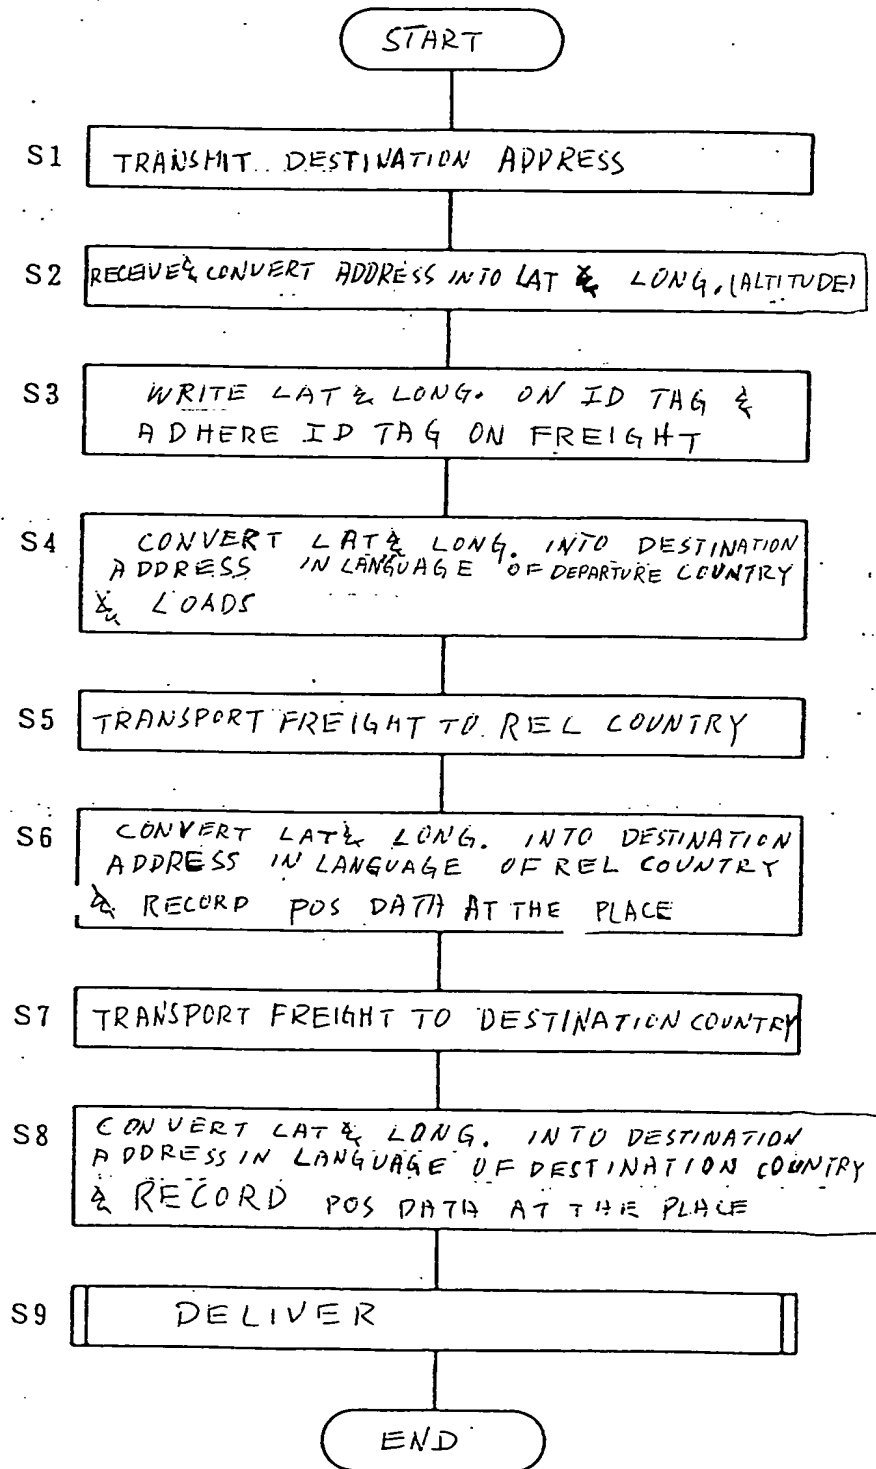 START
S1 TRANSMIT DESTINATION ADDRESS
S2 RECEIVE & CONVERT ADDRESS INTO LAT & LONG. (ALTITUDE)
S3 WRITE LAT & LONG. ON ID TAG &
ADHERE ID TAG ON FREIGHT
S4 CONVERT LAT & LONG. INTO DESTINATION
ADDRESS IN LANGUAGE OF DEPARTURE COUNTRY
& LOADS
S5 TRANSPORT FREIGHT TO REL COUNTRY
S6 CONVERT LAT & LONG. INTO DESTINATION
ADDRESS IN LANGUAGE OF REL COUNTRY
& RECORD POS DATA AT THE PLACE
S7 TRANSPORT FREIGHT TO DESTINATION COUNTRY
S8 CONVERT LAT & LONG. INTO DESTINATION
ADDRESS IN LANGUAGE OF DESTINATION COUNTRY
& RECORD POS DATA AT THE PLACE
S9 DELIVER
END